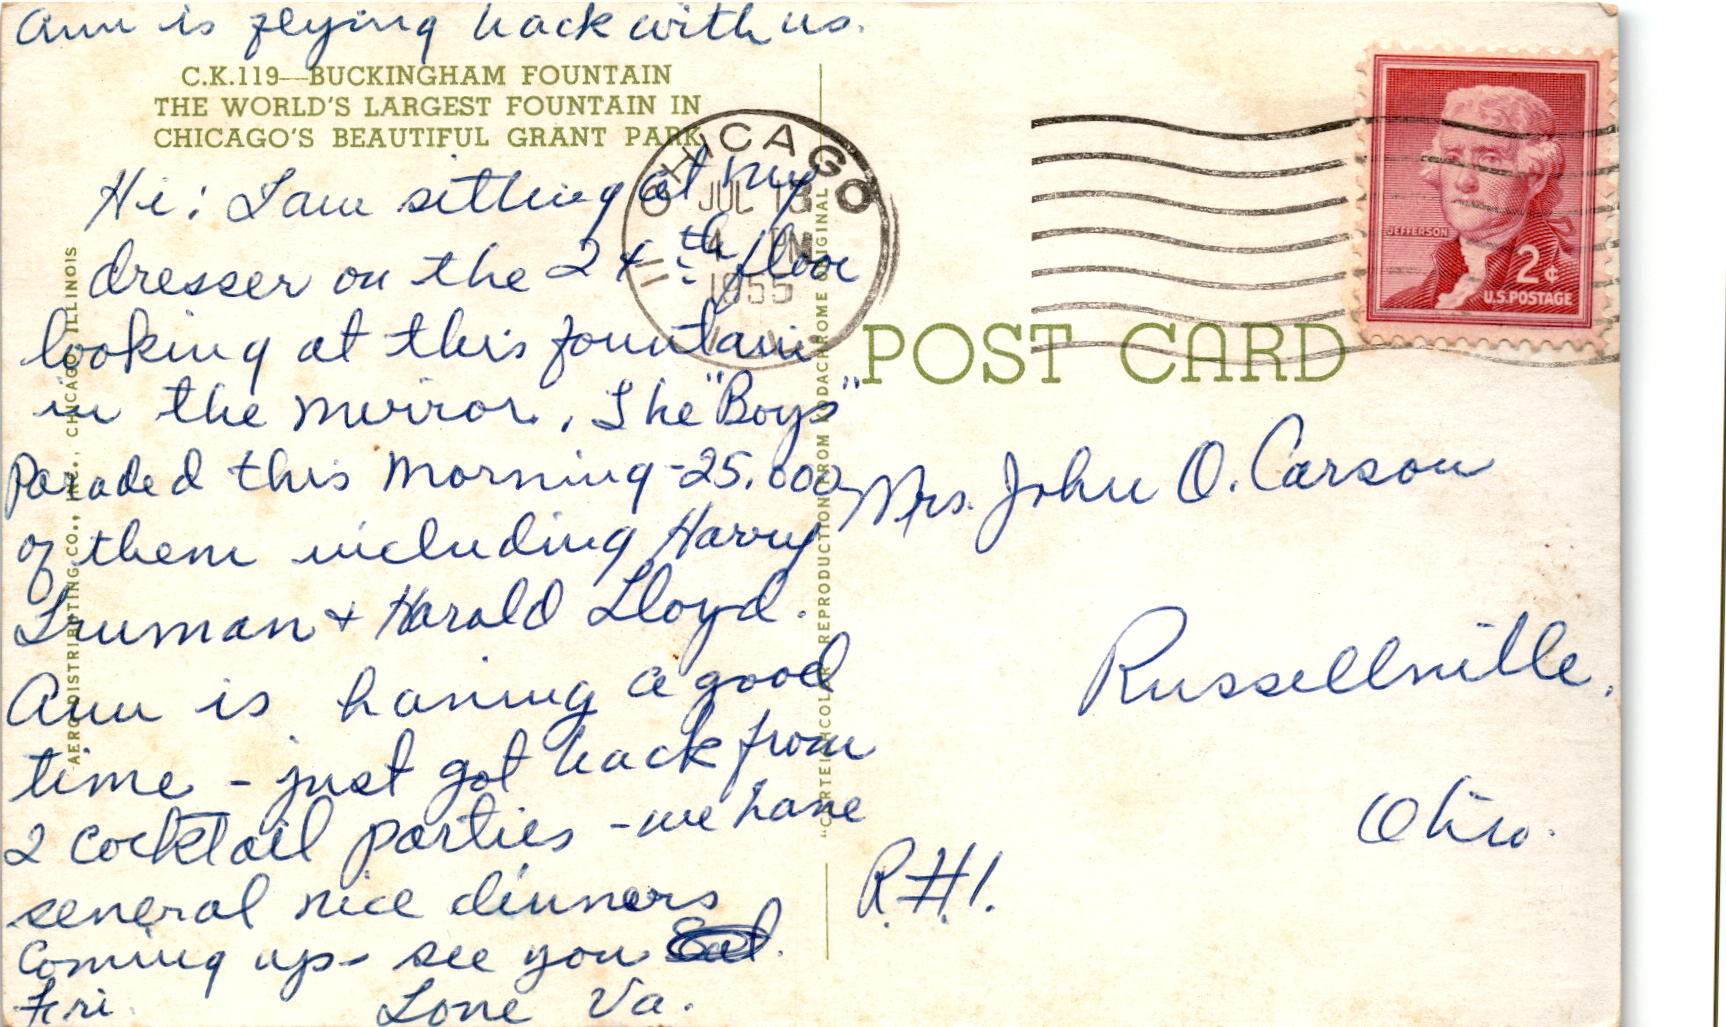 Ann is flying back with us.
C.K.119—BUCKINGHAM FOUNTAIN
THE WORLD'S LARGEST FOUNTAIN IN
CHICAGO'S BEAUTIFUL GRANT PARK
Hi: I am sitting at my
dresser on the 24th floor
looking at this fountain
in the mirror. The "Boys"
Paraded this morning - 25,000
of them including Harry
Truman + Harold Lloyd.
Ann is having a good
time - just got back from
2 cocktail parties - we have
several nice dinners
coming up - see you
Fri. Love Va.
AERO DISTRIBUTING CO., INC., CHICAGO, ILLINOIS
"CURTEICHCOLOR" REPRODUCTION FROM KODACHROME ORIGINAL
CHICAGO
JUL 13
PM
1955
ILL
JEFFERSON
2¢
U.S. POSTAGE
POST CARD
Mrs. John O. Carson
Russellville,
Ohio.
R.#1.